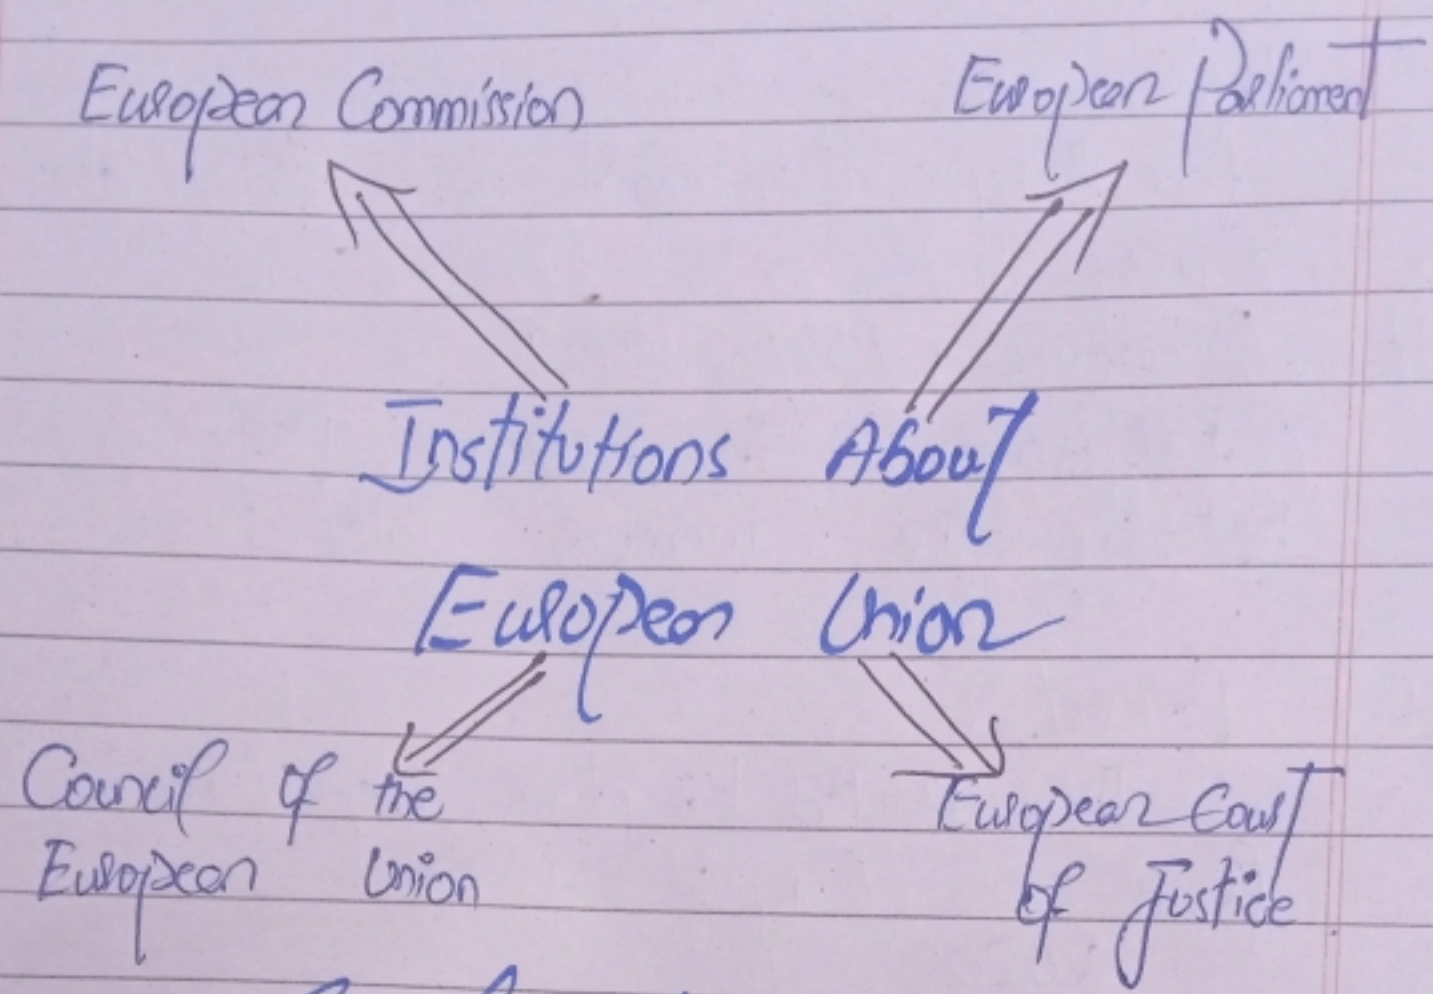 European Commission
European Parliament
Institutions About
European Union
Council of the
European Union
European Court
of Justice